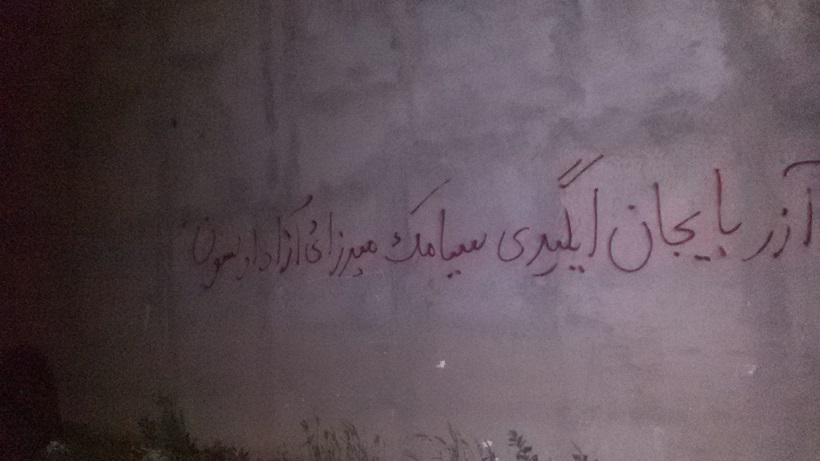 آذربایجان ایگیدی سیامک میرزائی آزاد اولسون